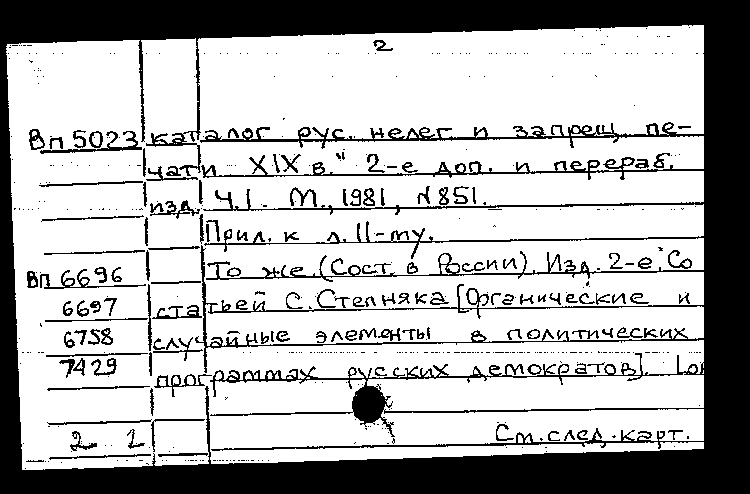 2
Вп 5023 каталог рус. нелег и запрещ пе-
чати XIX в." 2-е доп. и перераб.
изд. Ч.I. М., 1981, N 851.
Прил. к л. II-му.
Вп 6696 То же. (Сост. в России). Изд. 2-е. Со
6697 статьей С. Степняка [Органические и
6758 случайные элементы в политических
7429 программах русских демократов]. Lon
2 1 См. след. карт.